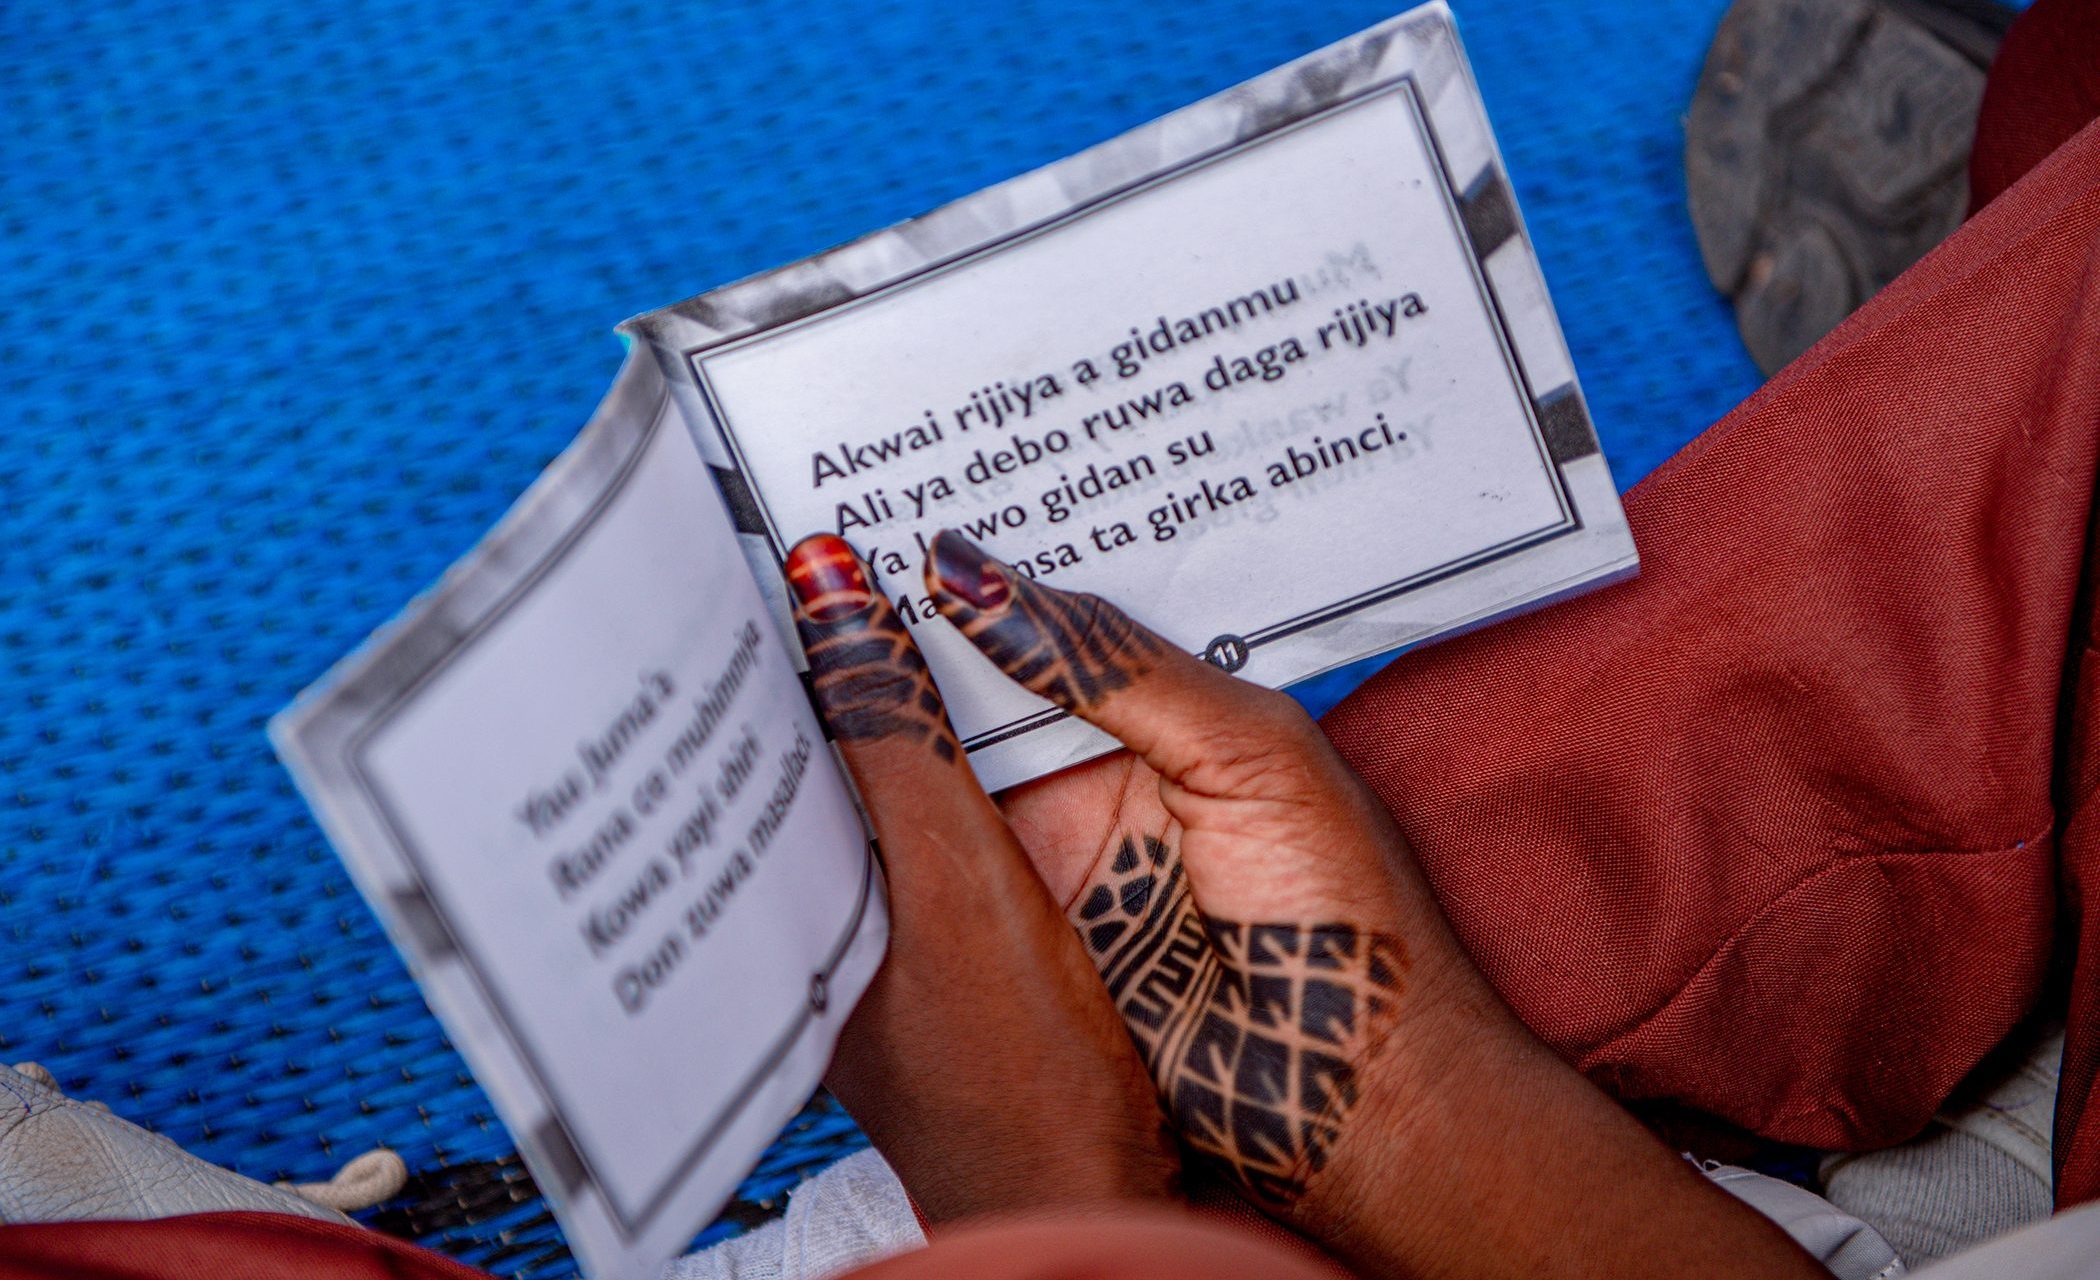 Yau Juma'a
Rana ce muhimmiya
Kowa yayi shiri
Don zuwa masallaci
Akwai rijiya a gidanmu
Ali ya debo ruwa daga rijiya
Ya gidan su
ta girka abinci.
11